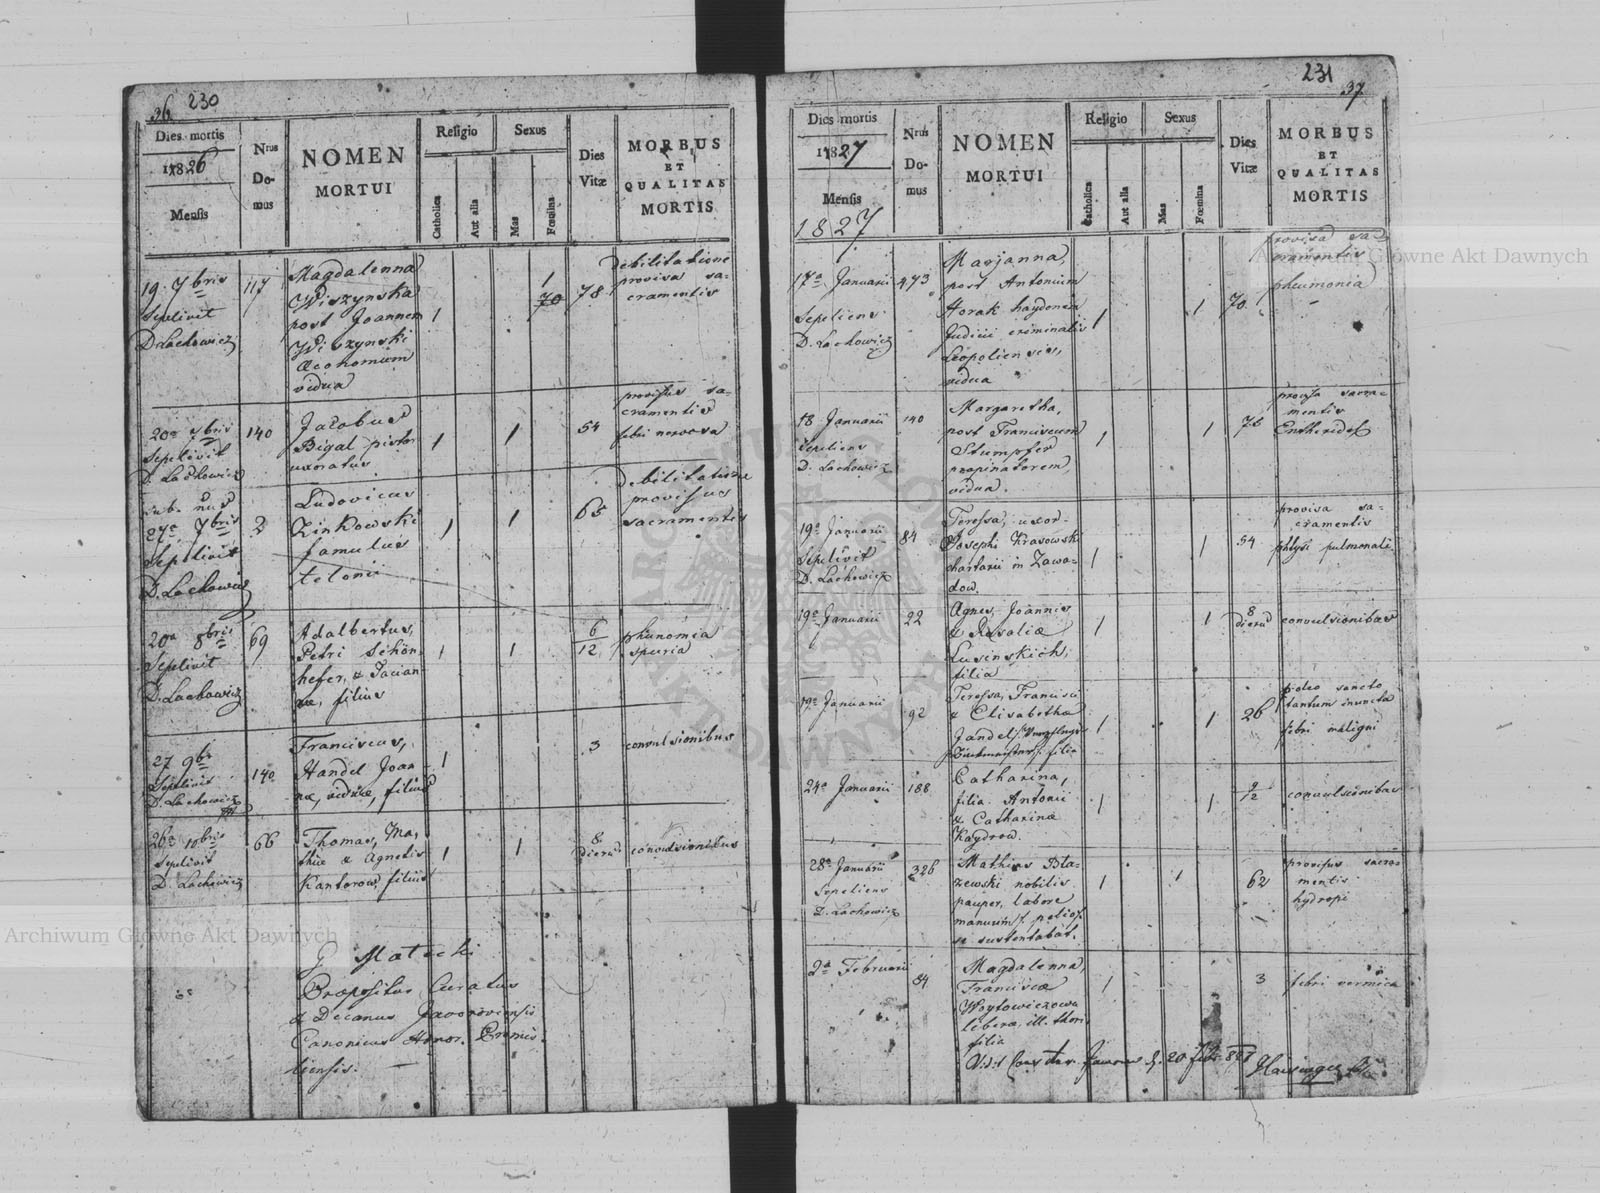 36. 230
Dies mortis
1826
Mensis
Nrus
Do-
mus
NOMEN
MORTUI
Religio
Catholica
Aut alia
Sexus
Mas
Fœmina
Dies
Vitæ
MORBUS
ET
QUALITAS
MORTIS
19. 7bris
Sepelivit
D Lachowicz
117
Magdalenna
Wiszynska
post Joannem
Wiszynski
Œconomum
vidua
1
1
70
78
debilitatione
provisa sa-
cramentis
20a 7bris
Sepelivit
D. Lachowicz
140
Jacobus
Bigal pistor
uxoratus
1
1
54
provisus sa-
cramentis
febri nervosa
sub. nus
27a 7bris
Sepelivit
D. Lachowicz
2
Ludovicus
Zinkowski
famulus
telonii
1
1
65
debilitatione
provisus
sacramentis
20a 8bris
Sepelivit
D. Lachowicz
69
Adalbertus,
Petri Schön
hefer, &
næ, filius
1
1
6/12
phunomia
spuria
27 9bris
Sepelivit
D. Lachowicz
140
Franciscus,
Handel Joan
næ, viduæ, filius
1
3
convulsionibus
26a 10bris
Sepelivit
D. Lachowicz
66
Thomas, Ma,
thiæ & Agnetis
Kantorow, filius
1
1
8
dierum
convulsionibus
Præpositus Curatus
& Decanus Javoroviensis
Canonicus Honor. Premis
liensis.
231
37
Dies mortis
1827
Mensis
1827
Nrus
Do-
mus
NOMEN
MORTUI
Religio
Catholica
Aut alia
Sexus
Mas
Fœmina
Dies
Vitæ
MORBUS
ET
QUALITAS
MORTIS
17a Januarii
Sepeliens
D. Lachowicz
473
Marjanna,
post Antonium
Horak
Judicii criminalis
Leopoliensis,
vidua
1
1
70
provisa sa-
cramentis
pheumonia
18 Januarii
Sepeliens
D. Lachowicz
140
Margaretha,
post Franciscum
Stumpfer
propinatorem,
vidua.
1
1
76
provisa sacra-
mentis
19a Januarii
Sepelivit
D. Lachowicz
84
Teressa, uxor
Josephi Krasowski
chartarii in Zawa-
dow.
1
1
54
provisa sa-
cramentis
phtysi pulmonali
19a Januarii
22
Agnes, Joannis
& Rosaliæ
Lusinskich,
filia
1
1
8
dierum
convulsionibus
19a Januarii
92
Teressa, Francisci
& Elisabetha
Jandel
filia
1
1
26
p. oleo sancto
tantum inuncta
febri maligni
24a Januarii
188
Catharina,
filia Antonii
& Catharinæ
Kaydrow.
1
1
9/12
convulsionibus
28a Januarii
Sepeliens
D. Lachowicz
326
Mathias Bla-
zewski nobilis
pauper, labore
manuum
se sustentabat.
1
1
62
provisus sacra-
mentis
hydropi
2a Februarii
84
Magdalenna,
Franciscæ
Woytowiczowa
libera, ill. thori
filia
1
3
febri vermica
20
Archiwum Główne Akt Dawnych
Archiwum Główne Akt Dawnych
ARCHIWUM GŁÓWNE AKT DAWNYCH